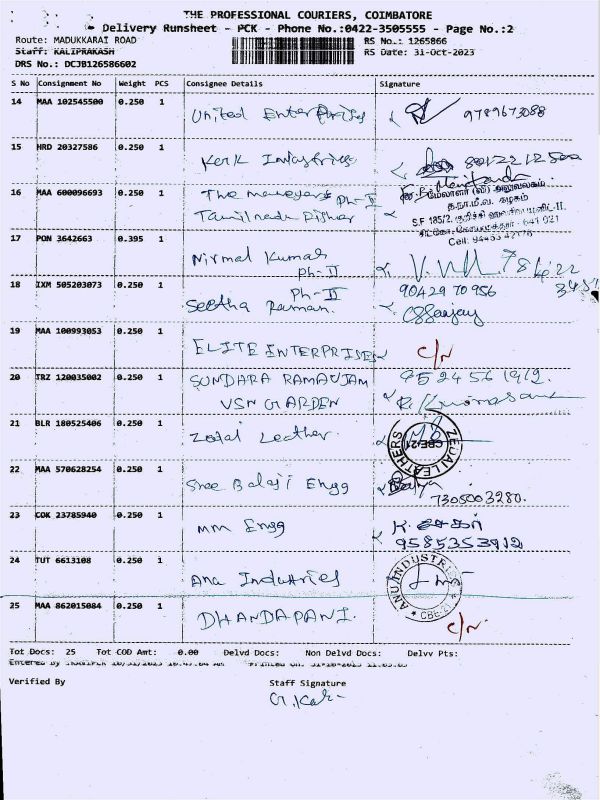 THE PROFESSIONAL COURIERS, COIMBATORE
Delivery Runsheet - PCK - Phone No.:0422-3505555 - Page No.:2
Route: MADUKKARAI ROAD
RS No.: 1265866
Staff: KALIPRAKASH
RS Date: 31-Oct-2023
DRS No.: DCJB126586602
S No Consignment No Weight PCS Consignee Details Signature
14 MAA 102545500 0.250 1 United Enterprises 9789673088
15 HRD 20327586 0.250 1 Kerk Industries
16 MAA 600096693 0.250 1 The manager Ph-II
மேலாளர் (வி) அலுவலகம்
Tamilnadu Fisher
த.நா.மீ.வ. கழகம்
S.F 185/2,
641 021
Cell:
17 PON 3642663 0.395 1 Nirmal Kumar
Ph-II
18 IXM 505203073 0.250 1 Ph-II 9042970956
Seetha Raman.
19 MAA 100993053 0.250 1 ELITE ENTERPRISES C/N
20 TRZ 120035002 0.250 1 SUNDARA RAMANUJAM 9524561912.
VSN GARDEN
21 BLR 180525406 0.250 1 Zedal Leather
ZEDAI LEATHERS CBE-21
22 MAA 570628254 0.250 1 Sree Balaji Engg
7305003280.
23 COK 23785940 0.250 1 mm Engg
9585353912
24 TUT 6613108 0.250 1 Anu Industries
ANU INDUSTRIES * CBE-21 *
25 MAA 862015084 0.250 1 DHANDAPANI. C/N.
Tot Docs: 25 Tot COD Amt: 0.00 Delvd Docs: Non Delvd Docs: Delvv Pts:
Verified By Staff Signature